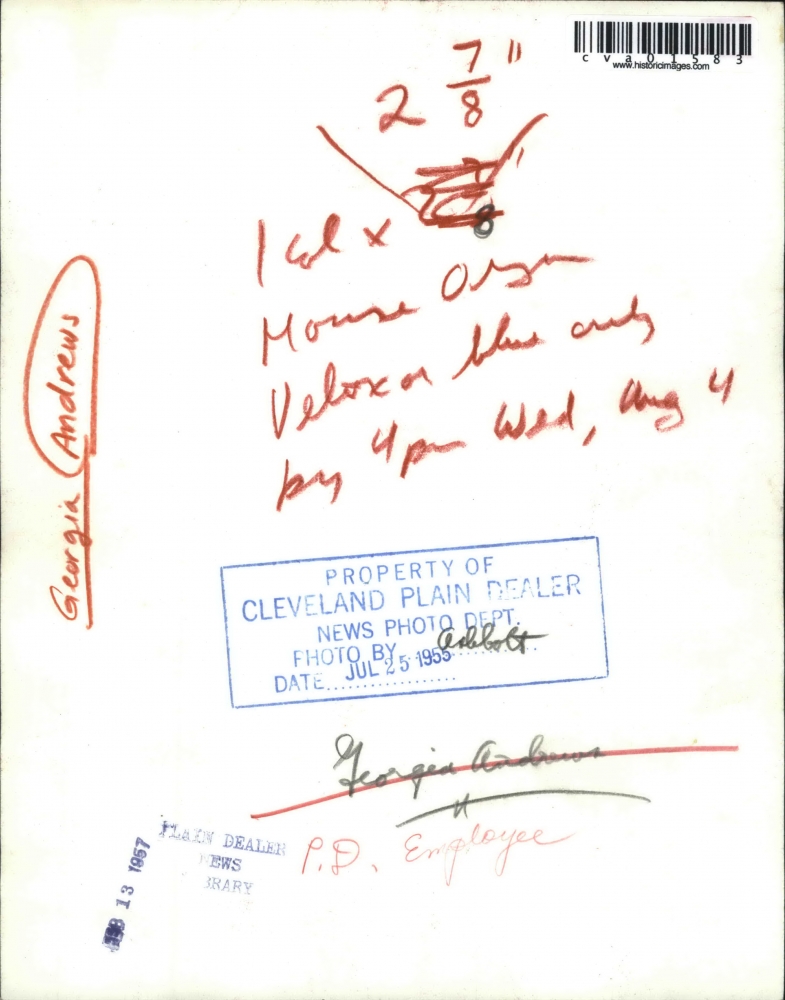 cva01583
www.historicimages.com
2 7/8"
8
1 Col x
House Organ
Velox or blue only
by 4 pm Wed, Aug 4
Georgia Andrews
PROPERTY OF
CLEVELAND PLAIN DEALER
NEWS PHOTO DEPT.
PHOTO BY Ashbolt
DATE JUL 25 1955
Georgia Andrews
P.D. Employee
PLAIN DEALER
NEWS
BRARY
13 1957